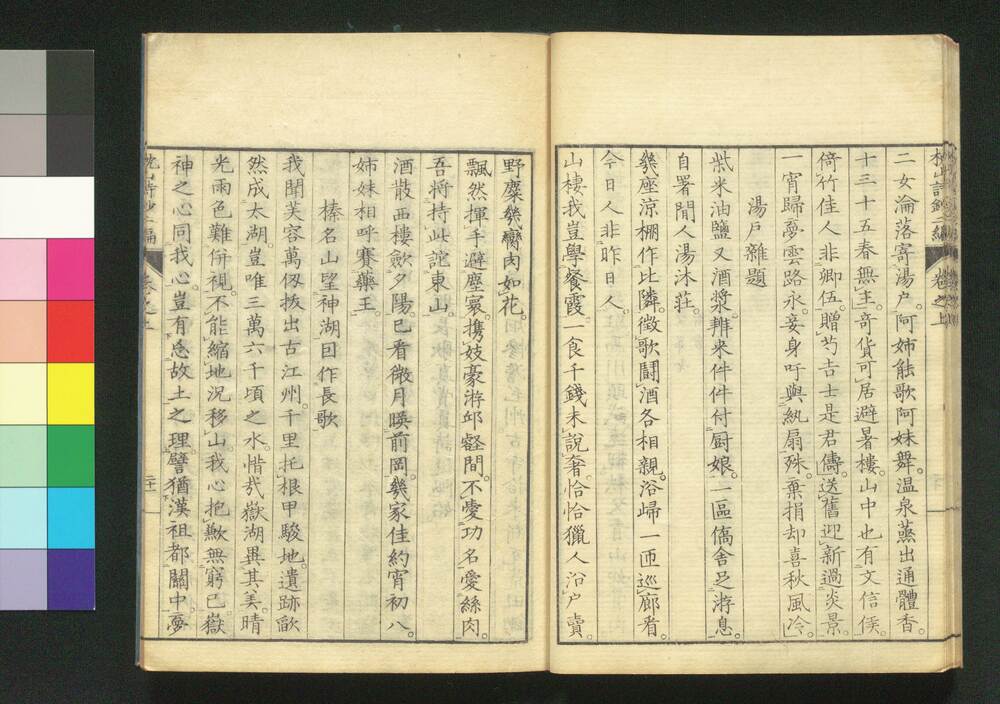 枕山詩鈔二編 卷之上
二女淪落寄湯戶。阿姊能歌阿妹舞。温泉蒸出通體香。
十三十五春無主。奇貨可居避暑樓。山中也有文信侯。
倚竹佳人非卿伍。贈芍吉士是君儔。送舊迎新過炎景。
一宵歸夢雲路永。妾身吁與紈扇殊。棄捐却喜秋風冷。
湯戶雜題
柴米油鹽又酒漿。辦來件件付厨娘。一區僑舍足游息。
自署閒人湯沐莊。
幾座涼棚作比隣。徵歌鬪酒各相親。浴歸一匝巡廊看。
今日人非昨日人。
山棲我豈學餐霞。一食千錢未說奢。恰恰獵人沿戶賣。
野麋幾臠肉如花。
飄然揮手避塵寰。携妓豪游邱壑間。不愛功名愛絲肉。
吾將持此詫東山。
酒散西樓斂夕陽。已看微月暎前岡。幾家佳約宵初八。
姊妹相呼賽藥王。
榛名山望神湖因作長歌
我聞芙容萬仭拔出古江州。千里托根甲駿地。遺跡㰸
然成太湖。豈唯三萬六千頃之水。惜哉嶽湖異其美。晴
光雨色難倂視。不能縮地況移山。我心抱歉無窮已。嶽
神之心同我心。豈有忘故土之理。譬猶漢祖都關中。夢